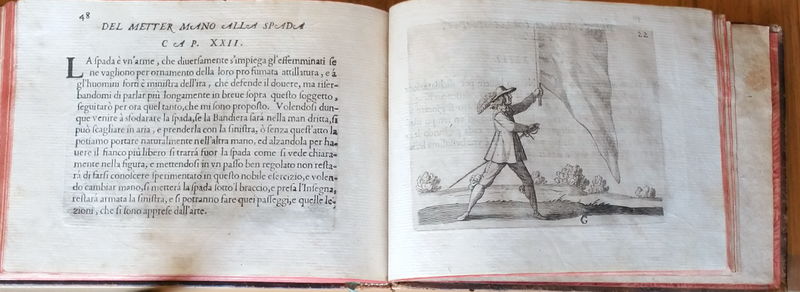 48
DEL METTER MANO ALLA SPADA
CAP. XXII.
LA spada è vn'arme, che diuersamente s'impiega gl'effemminati se
ne vagliono per ornamento della loro profumata attillitura, e à
gl'huomini forti è ministra dell'ira, che defende il douere, ma riser-
bandomi di parlar più longamente in breue sopra questo soggetto,
seguitarò per ora quel tanto, che mi sono proposto. Volendosi dun-
que venire à sfodarare la spada, se la Bandiera sarà nella man dritta, si
può scagliare in aria, e prenderla con la sinistra, ò senza quest'atto la
potiamo portare naturalmente nell'altra mano, ed alzandola per ha-
uere il fianco più libero si trarrà fuor la spada come si vede chiara-
mente nella figura, e mettendosi in vn passo ben regolato non resta-
rà di farsi conoscere sperimentato in questo nobile esercizio, e volen-
do cambiar mano, si metterà la spada sotto l braccio, e presa l'Insegna,
restarà armata la sinistra, e si potranno fare quei passeggi, e quelle le-
zioni, che si sono apprese dall'arte.
22
G